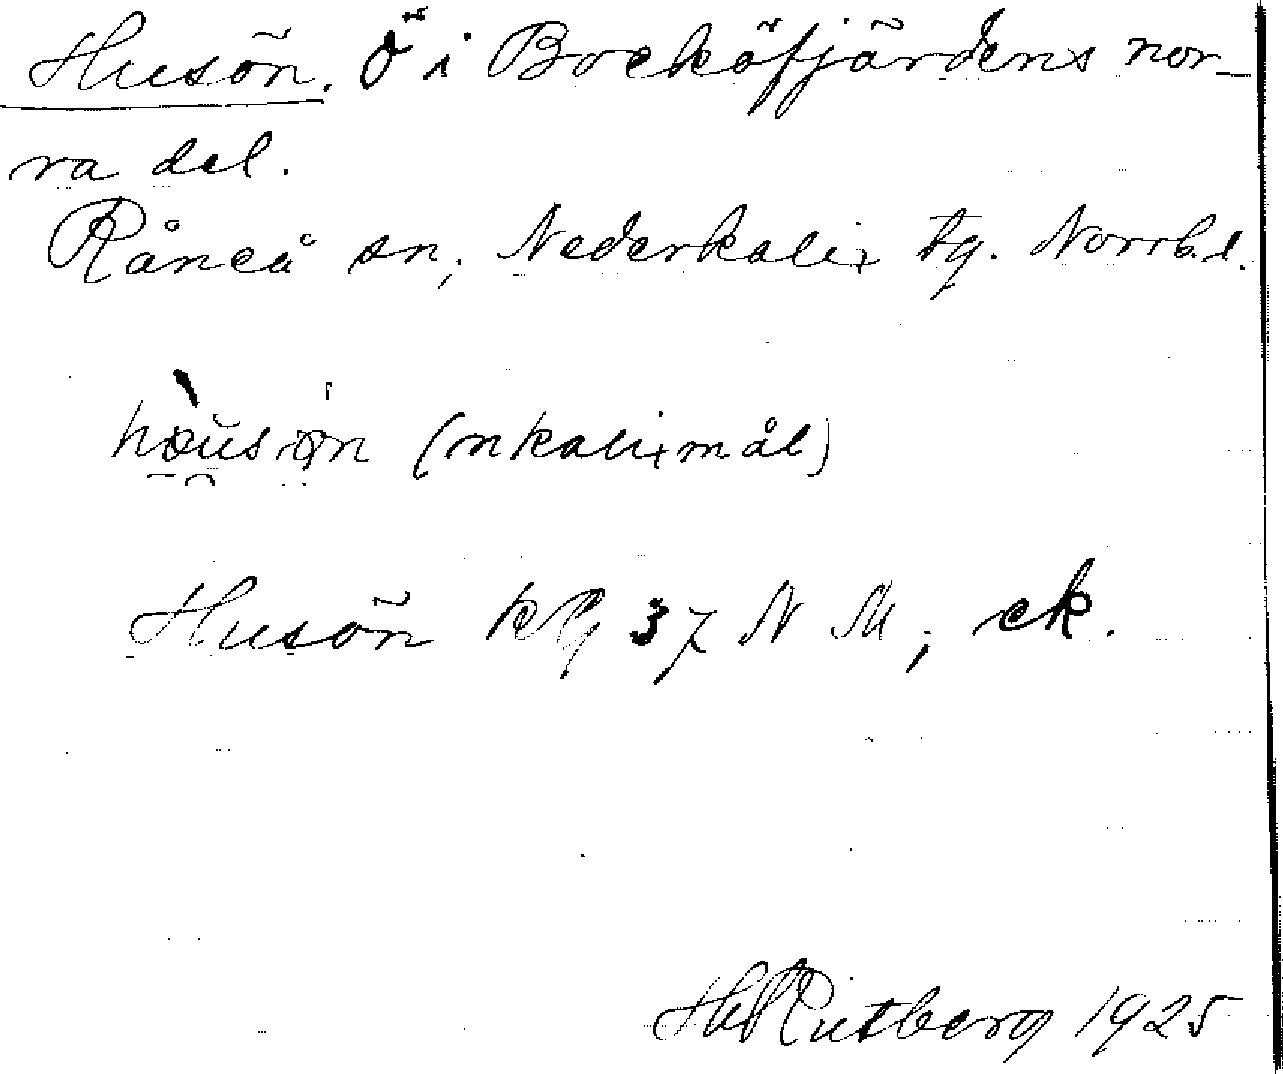 Husön. Ö i Bocköfjärdens nor-
ra del.
Råneå sn, Nederkalix tg. Norrb. l.
(nkalixmål)
Husön kbl 37 N M, ek.
Hj Rutberg 1925